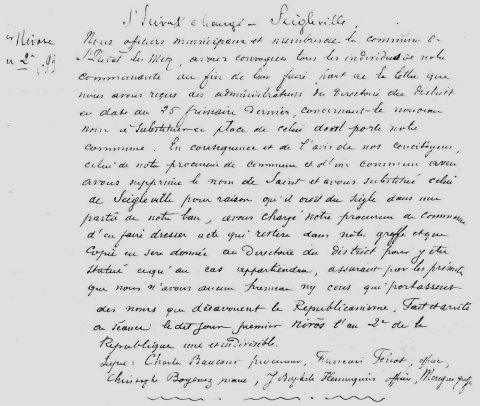 St Privat changé en Seigleville.
1er Nivose
an 2e / 93
Nous officiers municipaux et membres de la commune de
St Privat les Metz, avons convoqués tous les individus de notre
communauté au fin de leur faire part de la lettre que
nous avons reçus des administrateurs du Directoire du District
en date du 25 frimaire dernier, concernant le nouveau
nom à substituer en place de celui dont porte notre
commune. En conséquence et de l'avis de nos concitoyens,
celui de notre procureur de commune et d'un commun aveu
avons supprimé le nom de Saint et avons substitué celui
de Seigleville pour raison qu'il croit du seigle dans une
partie de notre ban, avons chargé notre procureur de commune
d'en faire dresser acte qui restera dans notre greffe et que
copie en sera donnée au Directoire du district pour y être
statué ainsi au cas appartiendra, assurant par les présentes
que nous n'avons aucun hameau ny cens qui portassent
des noms que désavouent le Républicanisme. Fait et arrêté
en séance le dit jour premier nivôs l'an 2e de la
République une et indivisible.
Signé: Charle Baucour procureur, François officier,
Christophe maire, J Baptiste officier,